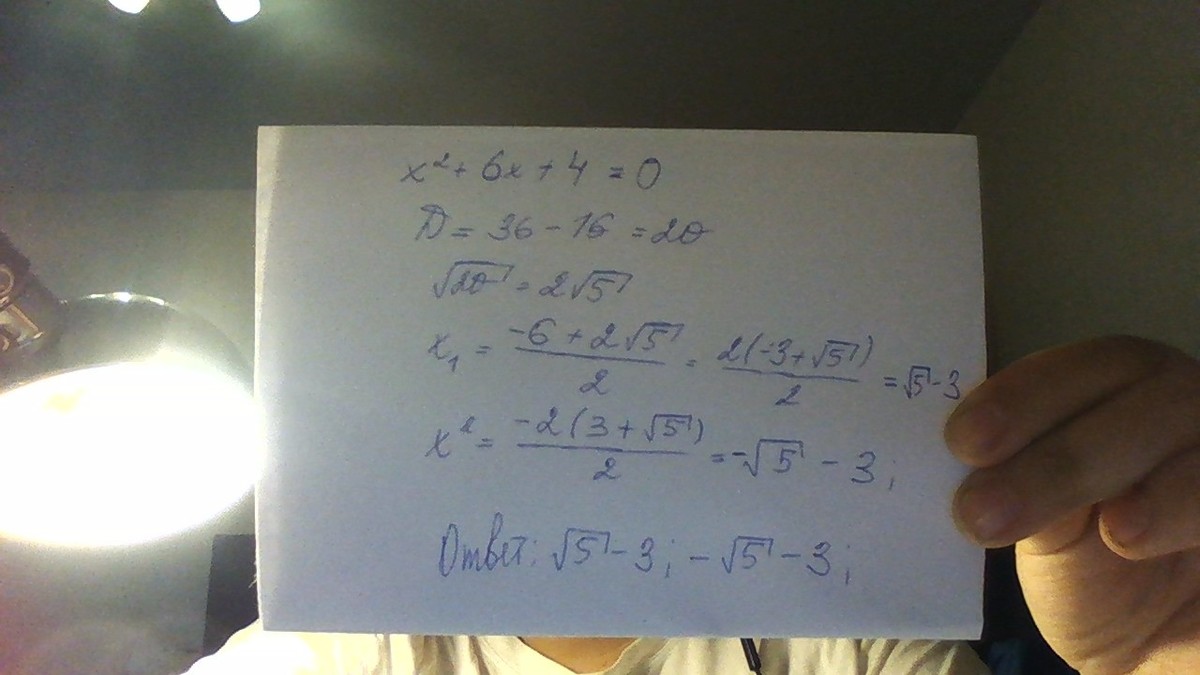 x² + 6x + 4 = 0
D = 36 - 16 = 20
√20 = 2√5
x₁ = (-6 + 2√5)/2 = 2(-3 + √5)/2 = √5 - 3
x² = -2(3 + √5)/2 = -√5 - 3;
Ответ: √5 - 3; -√5 - 3;